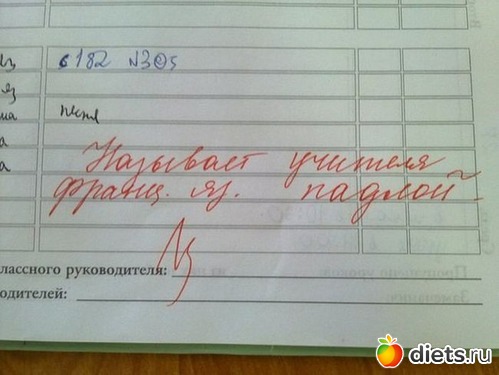 яз с 182 N305
яз
ма
а
а
Называет учителя
франц. яз. падлой.
лассного руководителя:
одителей:
diets.ru